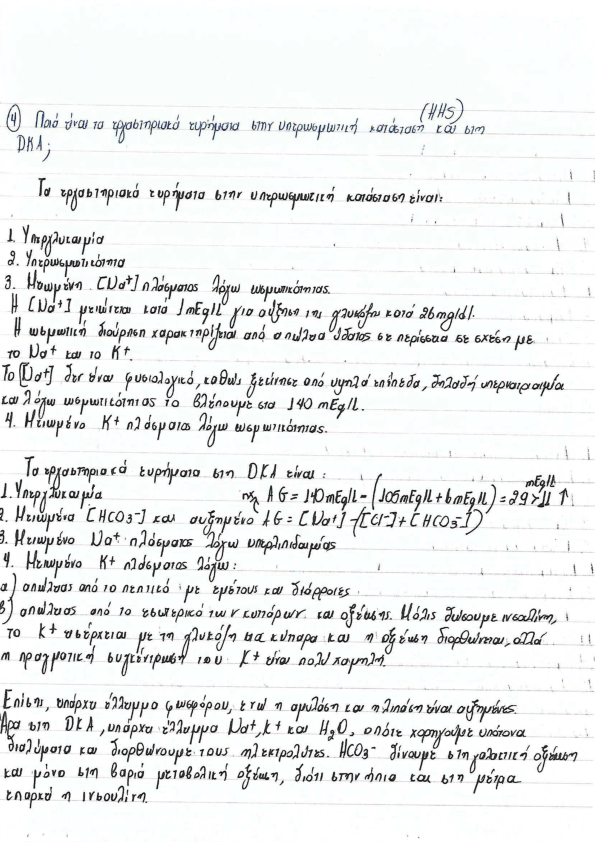 (HHS)
④ Ποιά είναι τα εργαστηριακά ευρήματα στην υπερωσμωτική κατάσταση και στη
DKA;
Τα εργαστηριακά ευρήματα στην υπερωσμωτική κατάσταση είναι:
1. Υπεργλυκαιμία
2. Υπερωσμωτικότητα
3. Μειωμένη [Na⁺] πλάσματος λόγω ωσμωτικότητας.
Η [Na⁺] μειώνεται κατά 1mEq/L για αύξηση της γλυκόζης κατά 26mg/dl.
Η ωσμωτική διούρηση χαρακτηρίζεται από απώλεια ύδατος σε περίσσεια σε σχέση με
το Na⁺ και το K⁺.
Το [Na⁺] δεν είναι φυσιολογικό, καθώς ξεκίνησε από υψηλά επίπεδα, δηλαδή υπερνατριαιμία
και λόγω ωσμωτικότητας το βλέπουμε στα 140 mEq/L.
4. Μειωμένο K⁺ πλάσματος λόγω ωσμωτικότητας.
Τα εργαστηριακά ευρήματα στη DKA είναι:
1. Υπεργλυκαιμία πχ AG = 140mEq/L - (105mEq/L + 6mEq/L) = 29 > 11 ↑ mEq/L
2. Μειωμένα [HCO3⁻] και αυξημένο AG = [Na⁺] - ([Cl⁻] + [HCO3⁻])
3. Μειωμένο Na⁺ πλάσματος λόγω υπερλιπιδαιμίας
4. Μειωμένο K⁺ πλάσματος λόγω:
α) απώλειας από το πεπτικό με εμέτους και διάρροιες
β) απώλειας από το εσωτερικό των κυττάρων και οξέωσης. Μόλις δώσουμε ινσουλίνη,
το K⁺ εισέρχεται με τη γλυκόζη στα κύτταρα και η οξέωση διορθώνεται, αλλά
η πραγματική συγκέντρωση του K⁺ είναι πολύ χαμηλή.
Επίσης, υπάρχει έλλειμμα φωσφόρου, ενώ η αμυλάση και η λιπάση είναι αυξημένες.
Άρα στη DKA, υπάρχει έλλειμμα Na⁺, K⁺ και H₂O, οπότε χορηγούμε υπότονα
διαλύματα και διορθώνουμε τους ηλεκτρολύτες. HCO3⁻ δίνουμε στη γαλακτική οξέωση
και μόνο στη βαριά μεταβολική οξέωση, διότι στην ήπια και στη μέτρια
επαρκεί η ινσουλίνη.